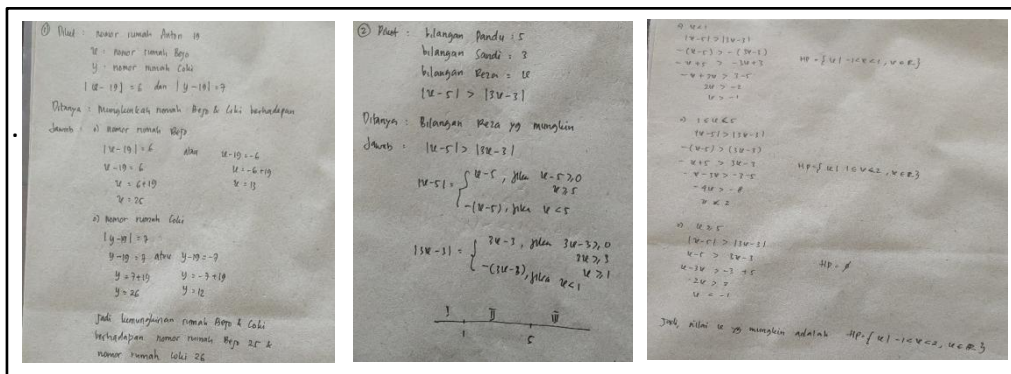 ① Diket : nomor rumah Anton 19
x = nomor rumah Bejo
y = nomor rumah Coki
|x - 19| = 6 dan |y - 19| = 7
Ditanya : Mungkinkah rumah Bejo & Coki berhadapan
Jawab : 1) nomor rumah Bejo
|x - 19| = 6 atau x - 19 = -6
x - 19 = 6 x = -6 + 19
x = 6 + 19 x = 13
x = 25
2) nomor rumah Coki
|y - 19| = 7
y - 19 = 7 atau y - 19 = -7
y = 7 + 19 y = -7 + 19
y = 26 y = 12
Jadi kemungkinan rumah Bejo & Coki
berhadapan nomor rumah Bejo 25 &
nomor rumah Coki 26
② Diket : bilangan Pandu : 5
bilangan Sandi : 3
bilangan Reza : x
|x - 5| > |3x - 3|
Ditanya : Bilangan Reza yg mungkin
Jawab : |x - 5| > |3x - 3|
|x - 5| = { x - 5 , jika x - 5 ≥ 0
x ≥ 5
-(x - 5), jika x < 5
|3x - 3| = { 3x - 3 , jika 3x - 3 ≥ 0
3x ≥ 3
x ≥ 1
-(3x - 3), jika x < 1
I II III
1 5
1) x < 1
|x - 5| > |3x - 3|
-(x - 5) > -(3x - 3)
-x + 5 > -3x + 3 HP = { x | -1 < x < 1, x ∈ R }
-x + 3x > 3 - 5
2x > -2
x > -1
2) 1 ≤ x < 5
|x - 5| > |3x - 3|
-(x - 5) > (3x - 3)
-x + 5 > 3x - 3
-x - 3x > -3 - 5 HP = { x | 1 < x < 2, x ∈ R }
-4x > -8
x < 2
3) x ≥ 5
|x - 5| > |3x - 3|
x - 5 > 3x - 3
x - 3x > -3 + 5 HP = ∅
-2x > 2
x = -1
Jadi, nilai x yg mungkin adalah HP = { x | -1 < x < 2, x ∈ R }